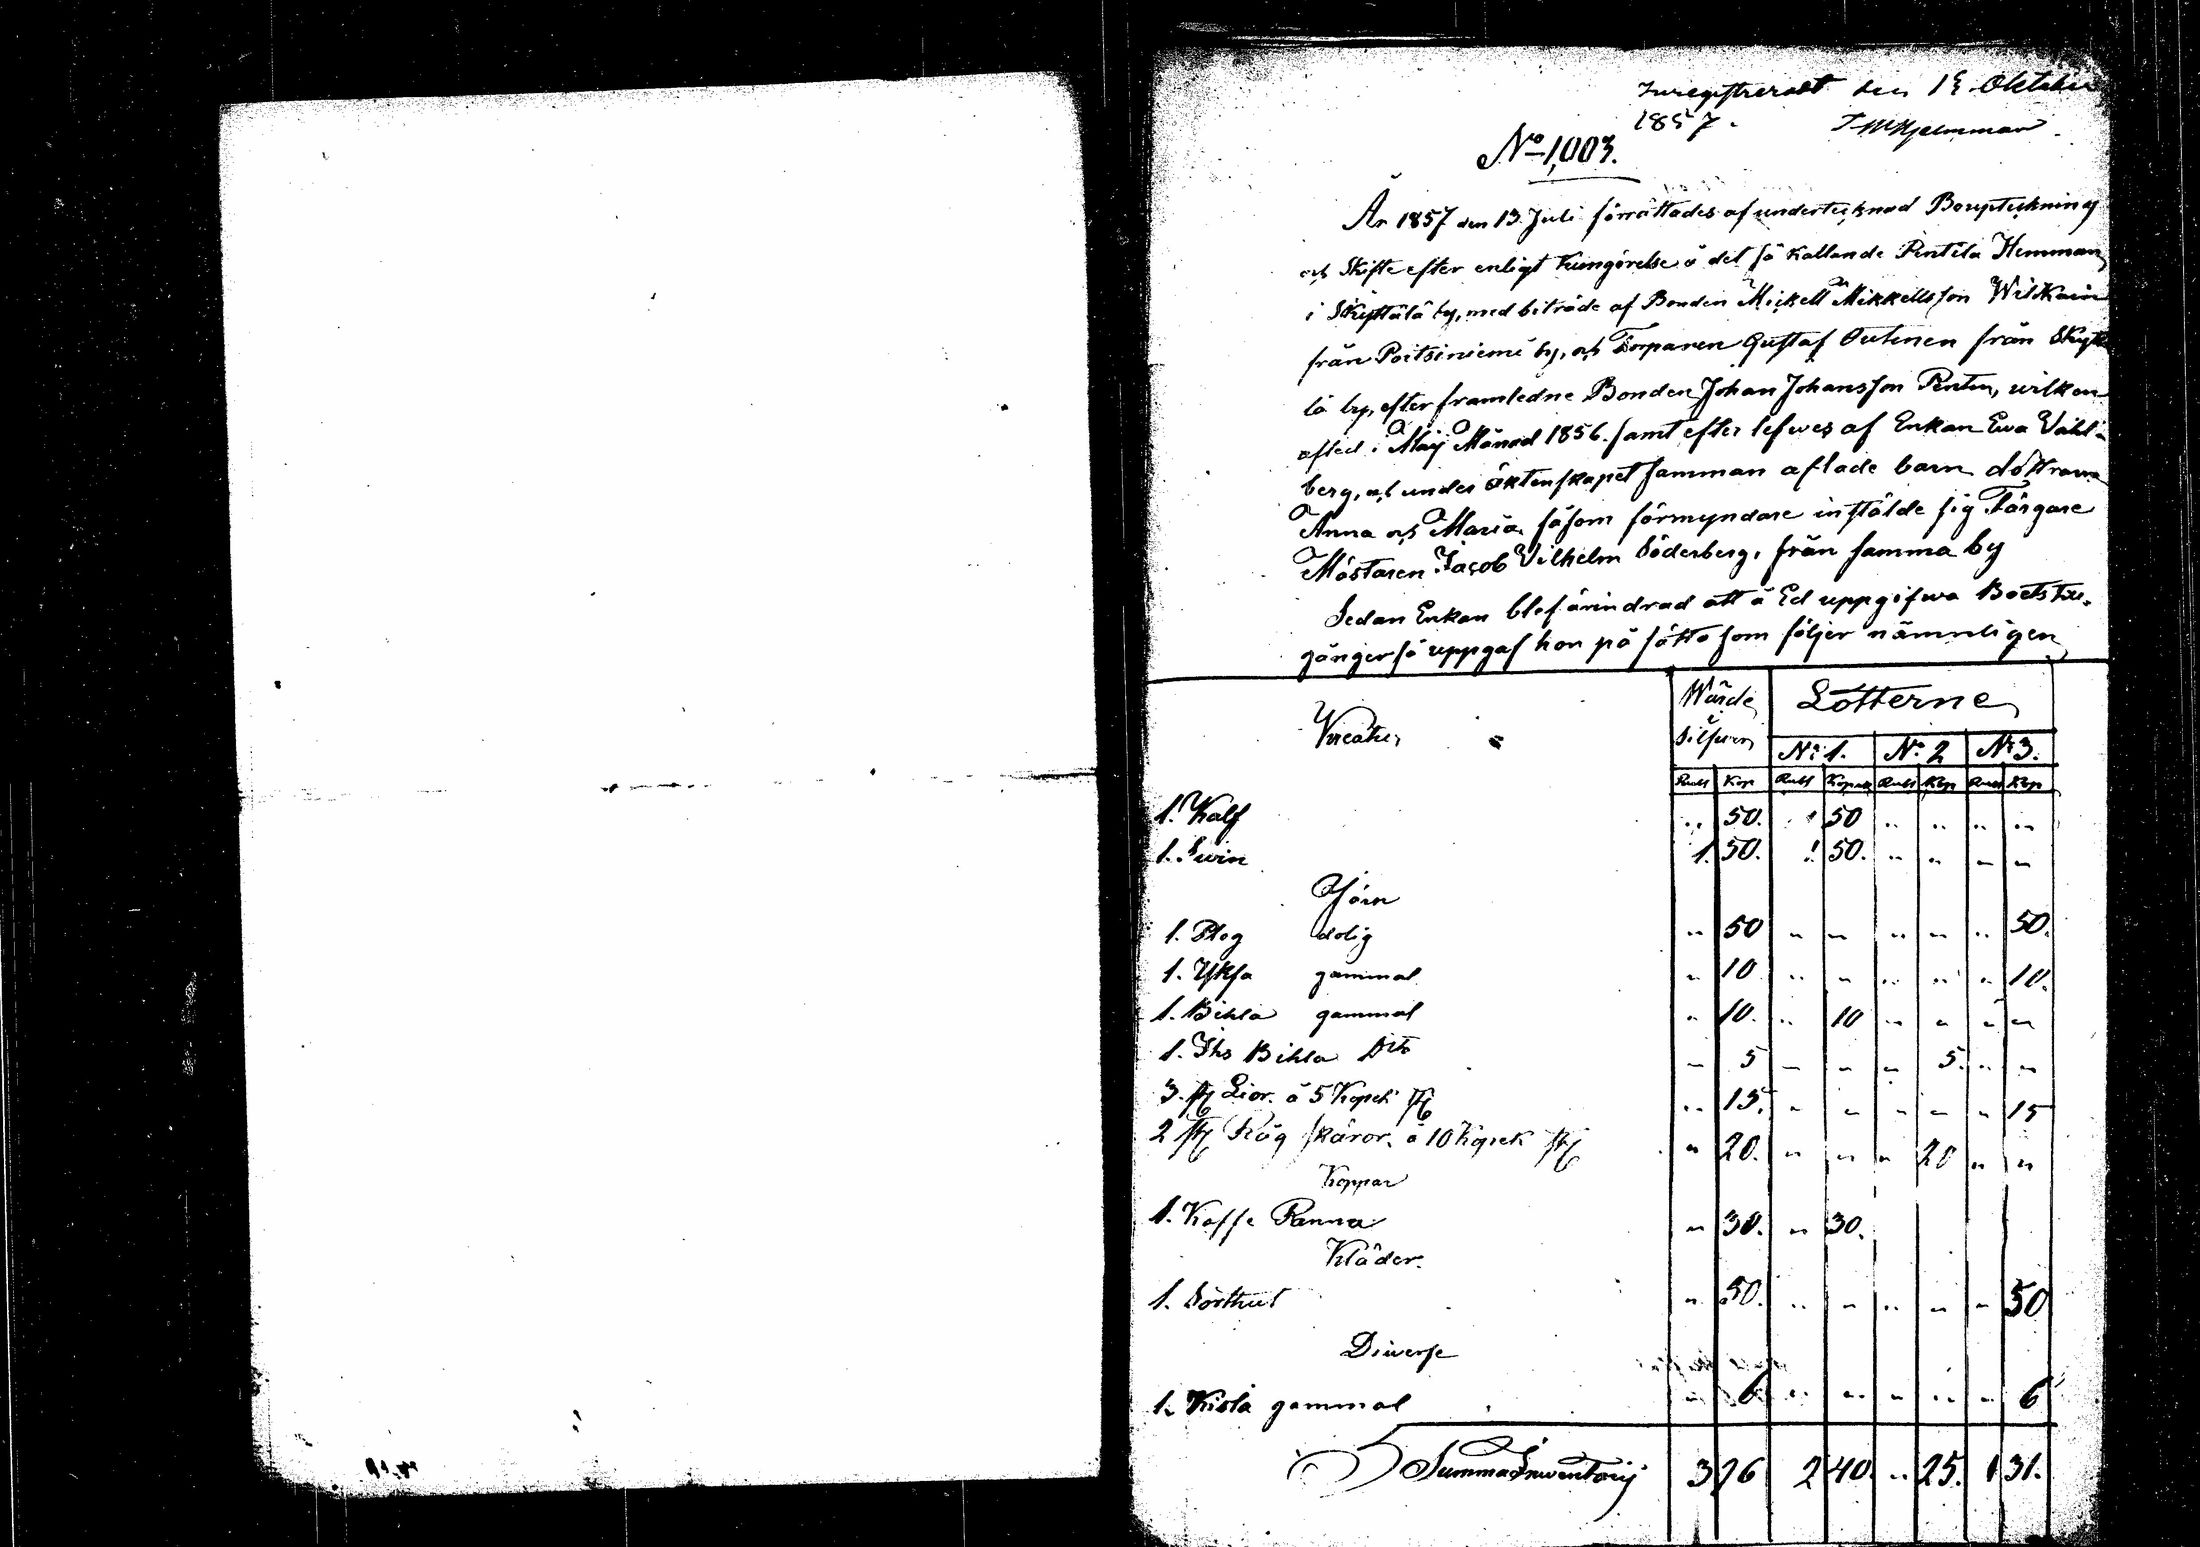 Inregistrerat den 19 Oktober
1857.
No 1,003.
År 1857 den 13 Juli förrättades af undertecknad Boupteckning
och Skifte efter enligt Kungörelse å det så kallande Pentila Hemman
i Skyttälä by, med biträde af Bonden Mickell Mikkellsson Wilkain
från Poitsiniemi by, och Torparen Gustaf Outinen från Skyttä
lä by, efter framledne Bonden Johan Johansson Pentin, wilken
afled i Maij Månad 1856. samt efter lefwes af Enkan Ewa Vahl-
berg, och under äktenskapet samman aflade barn döttrarna
Anna och Maria, såsom förmyndare instälde sig Färgare
Mästaren Jacob Vilhelm Söderberg, från samma by
Sedan Enkan blef ärindrad att å Ed uppgifwa Boets till-
gånger så uppgaf hon på sätt som följer nämnligen
Kreatur Wärde Silfwer Lotterne
No 1. No 2 No 3.
Rubl Kop Rubl Kopek Rubl Kop Rubl Kop
1. Kalf .. 50. .. 50 .. .. .. ..
1. Swin 1. 50. 1. 50. .. .. .. ..
Järn
1. Plog dolig .. 50 .. .. .. .. .. 50.
1. Yksa gammal .. 10 .. .. .. .. .. 10.
1. Bihla gammal .. 10. .. 10 .. .. .. ..
1. Ihs Bihla Dito .. 5 .. .. .. 5. .. ..
3. st Lior. á 5 Kopek st .. 15. .. .. .. .. .. 15
2 st Råg skäror. á 10 Kopek st .. 20. .. .. .. 20 .. ..
Koppar
1. Kaffe Panna .. 30. .. 30.
Kläder.
1. Sörthut .. 50. .. .. .. .. .. 50
Diwerse
1. Kista gammal .. 6 .. .. .. .. .. 6
Summa Inwentarij 3 96 2 40. .. 25. 1 31.